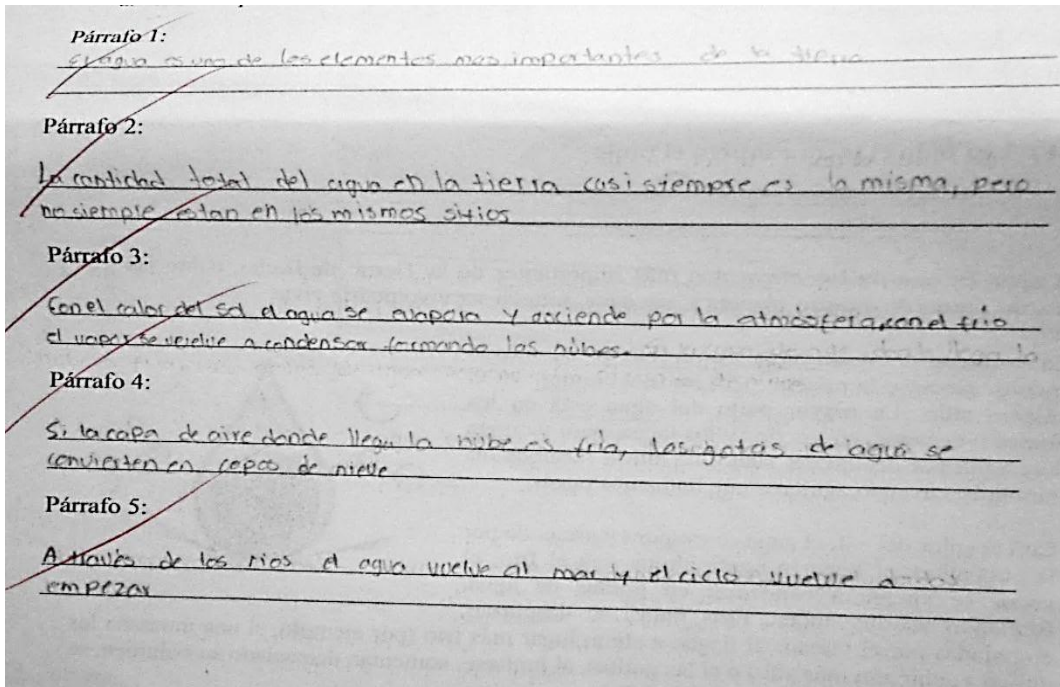 Párrafo 1:
El agua es uno de los elementos mas importantes de la tierra
Párrafo 2:
La cantidad total del agua en la tierra casi siempre es la misma, pero
no siempre estan en los mismos sitios
Párrafo 3:
Con el calor del sol el agua se evapora y asciende por la atmósfera, con el frio
el vapor se vuelve a condensar formando las nubes.
Párrafo 4:
Si la capa de aire donde llega la nube es fria, las gotas de agua se
convierten en copos de nieve
Párrafo 5:
A través de los rios el agua vuelve al mar y el ciclo vuelve a
empezar